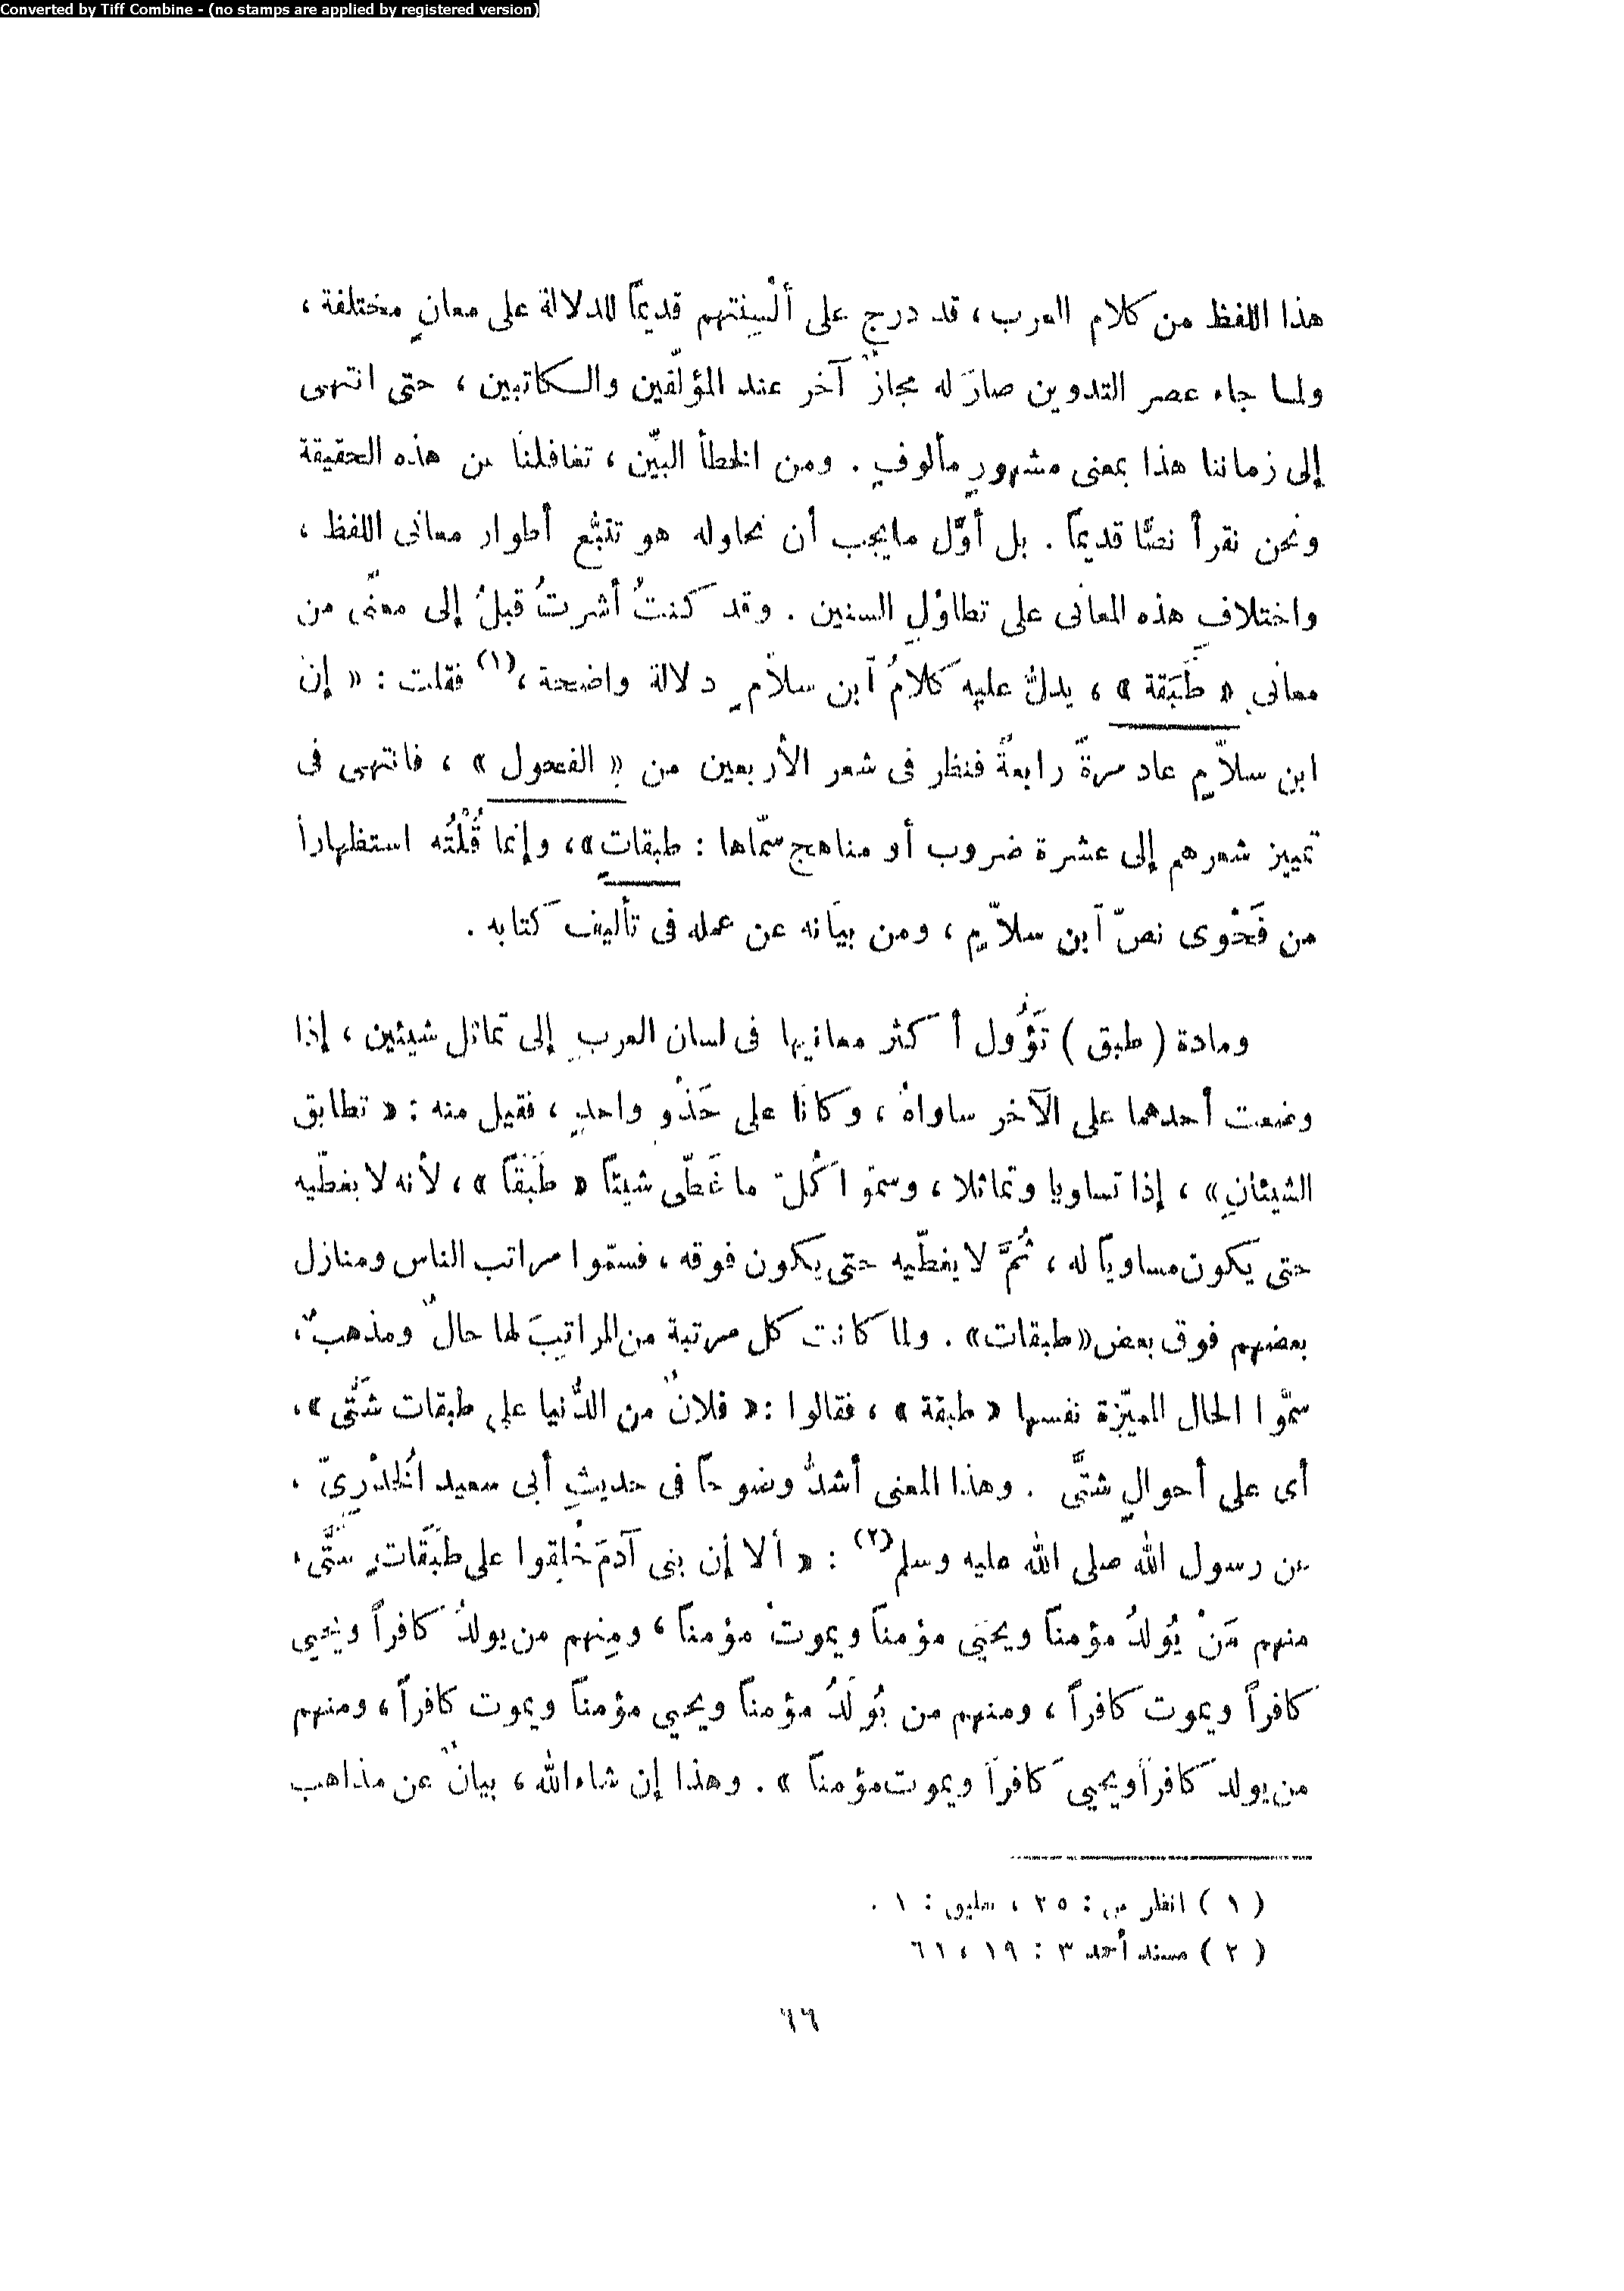 Converted by Tiff Combine - (no stamps are applied by registered version)
هذا اللفظ من كلام العرب ، قد درج على ألْسِنتهم قديمًا للدلالة على معانٍ مختلفة ،
ولما جاء عصر التدوين صارَ له مجازٌ آخر عند المؤلّفين والكاتبين ، حتى انتهى
إلى زماننا هذا بمعنى مشهورٍ مألوفٍ . ومن الخطأ البيّن ، تغافلنا عن هذه الحقيقة
ونحن نقرأ نصًّا قديمًا . بل أوّل مايجب أن نحاوله هو تتبُّع أطوار معانى اللفظ ،
واختلاف هذه المعانى على تطاوُلِ السنين . وقد كنتُ أشرتُ قبلُ إلى معنًى من
معانى « طَبَقة » ، يدلُّ عليه كلامُ آبن سلاّمٍ دلالة واضحة ،(١) فقلت : « إن
ابن سلاّمٍ عاد مرةً رابعةً فنظر فى شعر الأربعين من « الفحول » ، فانتهى فى
تمييز شعرهم إلى عشرة ضروب أو مناهج سمّاها : طبقاتٍ » ، وإنما قُلْتُه استظهاراً
من فَحْوى نصّ آبن سلاّمٍ ، ومن بيَانه عن عمله فى تأليف كتابه .
ومادة ( طبق ) تَؤُول أكثر معانيها فى لسان العربِ إلى تماثل شيئين ، إذا
وضعت أحدهما على الآخر ساواهُ ، وكانَا على حَذْوٍ واحدٍ ، فقيل منه : « تطابق
الشيئانِ » ، إذا تساويا وتماثلا ، وسمَّوا كُلَّ ما غَطّى شيئاً « طَبَقاً » ، لأنه لا يغطّيه
حتى يكون مساوياً له ، ثُمَّ لا يغطّيه حتى يكون فوقه ، فسمّوا مراتب الناس ومنازل
بعضهم فوق بعض « طبقات » . ولما كانت كل مرتبة من المراتِبَ لها حالٌ ومذهبٌ ،
سمَّوا الحال المميّزة نفسها « طبقة » ، فقالوا : « فلانٌ من الدُّنيا على طبقات شَتَّى » ،
أى على أحوالٍ شتَّى . وهذا المعنى أشدُّ وضوحاً فى حديثِ أبى سعيد الُخدْرِىّ ،
عن رسول الله صلى الله عليه وسلم(٢) : « ألا إن بنى آدمَ خُلِقوا على طَبَقَاتٍ شَتَّى ،
منهم مَنْ يُولدُ مؤمناً ويحيَى مؤمناً ويموتُ مؤمناً ، ومِنهم من يولدُ كافراً ويحيى
كافراً ويموت كافراً ، ومنهم من يُولَدُ مؤمناً ويحيى مؤمناً ويموت كافراً ، ومنهم
من يولد كافراً ويحيى كافراً ويموت مؤمناً » . وهذا إن شاء الله ، بيانٌ عن مذاهب
( ١ ) انظر ص : ٢٥ ، تعليق : ١ .
( ٢ ) مسند أحمد ٣ : ١٩ ، ٦١
٦٦